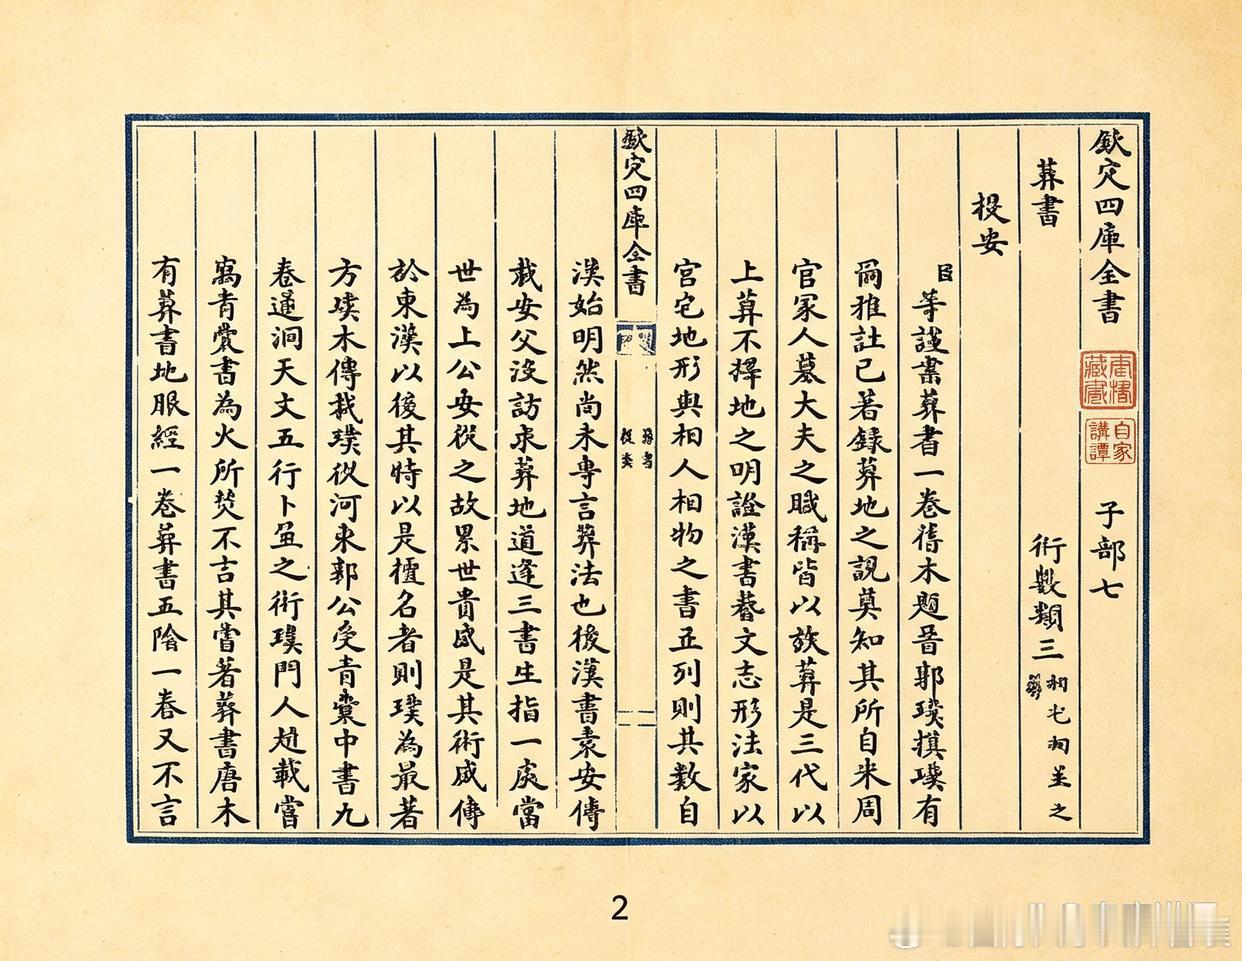 欽定四庫全書 子部七
葬書 術數類三
提要
臣等謹案葬書一卷舊本題晉郭璞撰璞有
爾雅註已著錄葬地之說莫知其所自來周
官冢人墓大夫之職稱皆以族葬是三代以
上葬不擇地之明證漢書藝文志形法家以
宮宅地形與相人相物之書並列則其數自
欽定四庫全書
葬書
提要
漢始明然尚未專言葬法也後漢書袁安傳
載安父沒訪求葬地道逢三書生指一處當
世為上公安從之故累世貴盛是其術盛傳
於東漢以後其時以是擅名者則璞為最著
方璞本傳載璞從河東郭公受青囊中書九
卷遂洞天文五行卜筮之術璞門人趙載嘗
竊青囊書為火所焚不言其嘗著葬書唐本
有葬書地脈經一卷葬書五陰一卷又不言
自家
講譚
2